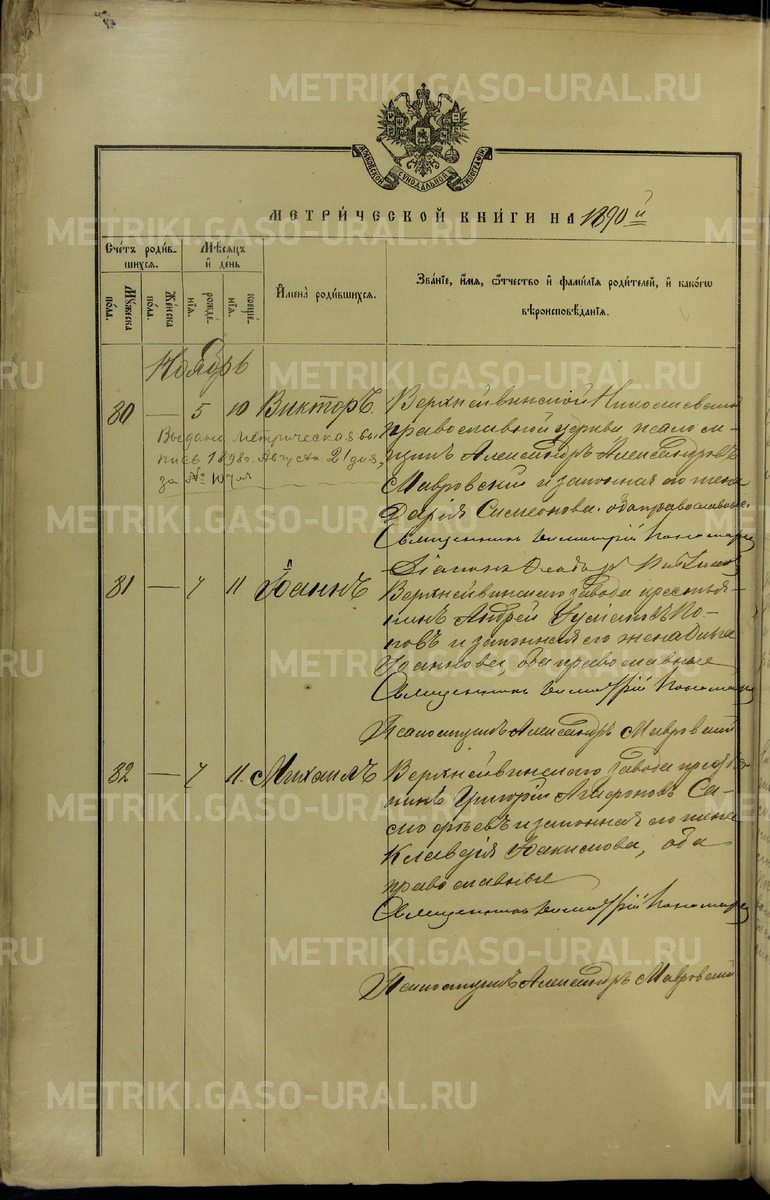 МОСКОВСКОЙ СѴНОДАЛЬНОЙ ТИПОГРАФІИ
МЕТРИ́ЧЕСКОЙ КНИ́ГИ НА 1890 й
Сче́тъ роди́вшихся.
Мѣ́сяцъ и҆ де́нь
И҆мена̀ роди́вшихся.
Зва́нїе, и҆́мя, ѻ҆́тчество и҆ фами́лїя роди́телей, и҆ како́гѡ вѣроисповѣ́данїя.
Мꙋ́жеска по́ла.
Же́нска по́ла.
рожде́нїѧ.
креще́нїѧ.
Ноябрь
80 — 5 10 Викторъ
Верхнейвинской Николаевской
православной церкви псаломщикъ Александръ Александровъ
Мавровский и законная его жена
Дарія Симеонова. оба православные.
Священникъ Димитрій Пономаревъ
Діаконъ
Выдана метрическая выпись 1898 г. Августа 21 дня,
за №
81 — 7 11 Іоаннъ
Верхнейвинскаго завода крестьянинъ Андрей Попов и законная его жена
Іоаннова, оба православные
Священникъ Димитрій Пономаревъ
Псаломщикъ Александръ Мавровский
82 — 7 11. Михаилъ
Верхнейвинскаго завода крестьянинъ Григорій Агафоновъ
и законная его жена
Клавдія Іакимова, оба
православные
Священникъ Димитрій Пономаревъ
Псаломщикъ Александръ Мавровский
METRIKI.GASO-URAL.RU